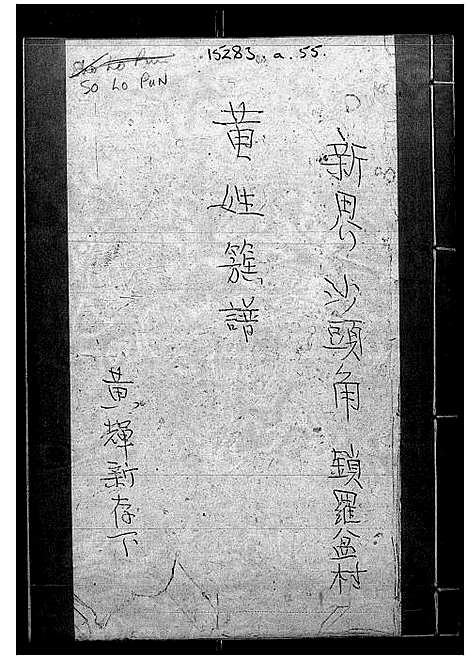 15283. a. 55.
SO LO PUN
新界沙頭角鎖羅盆村
黃姓簇譜
黃輝新存下